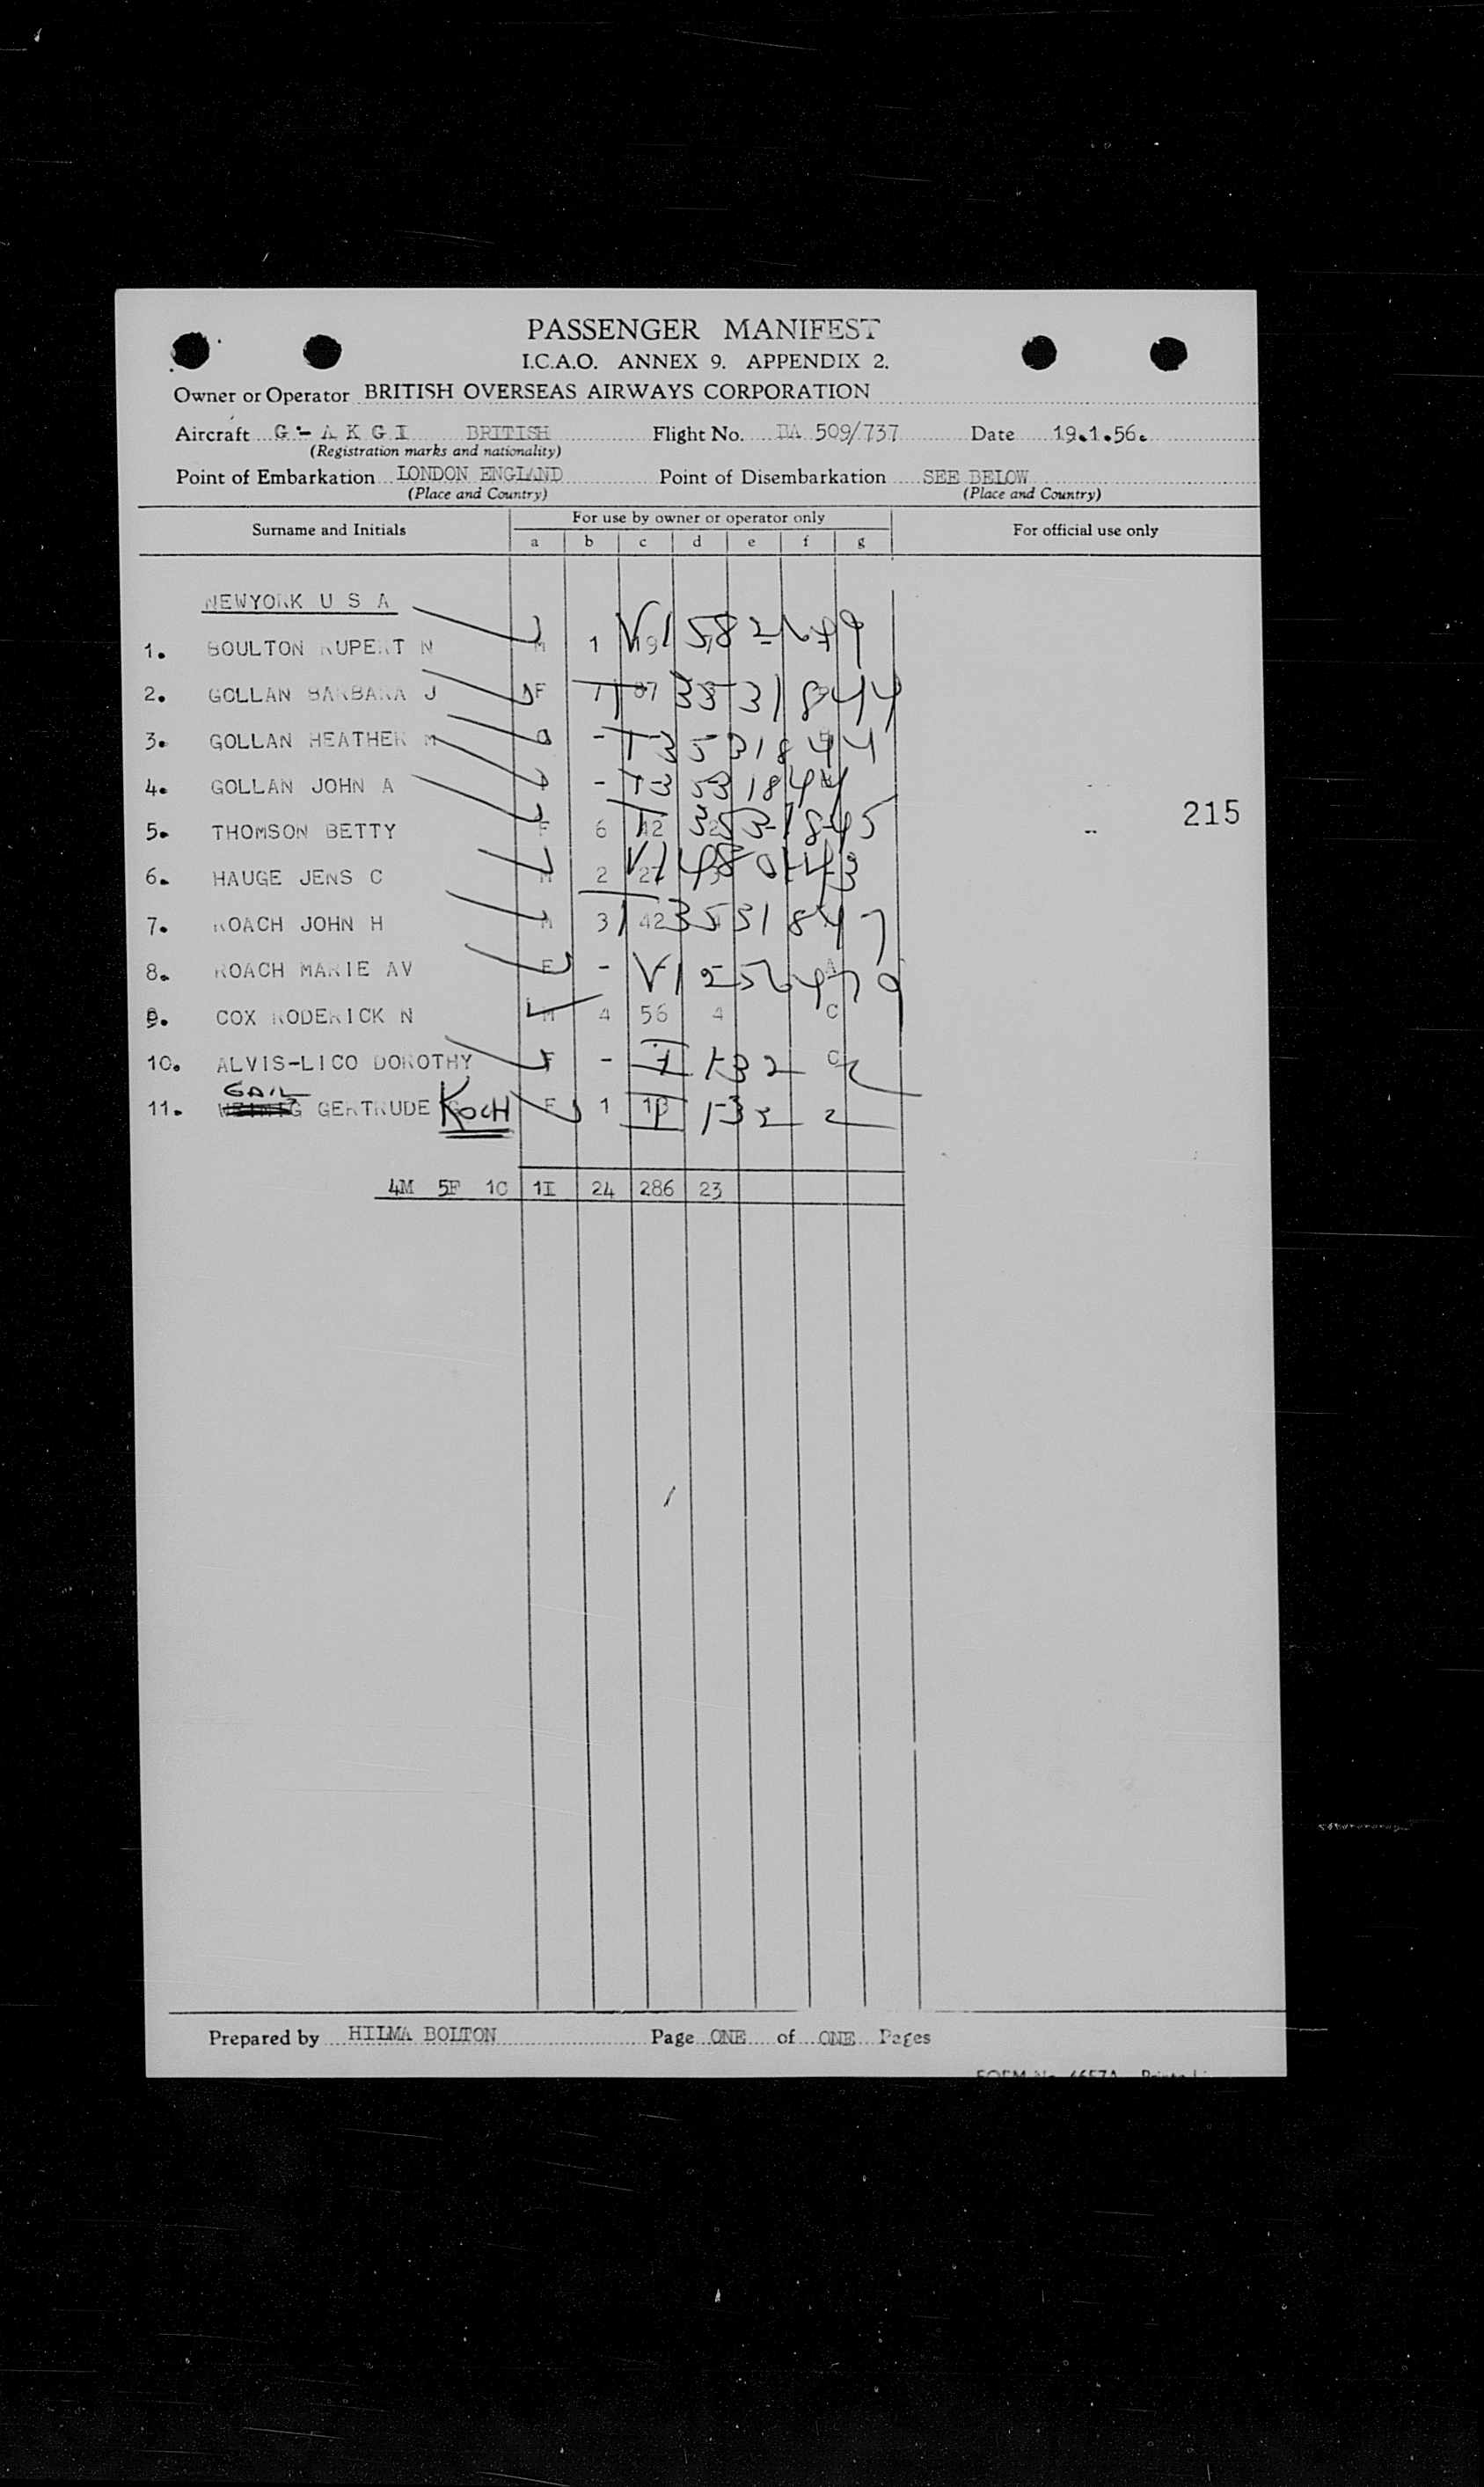 PASSENGER MANIFEST
I.C.A.O. ANNEX 9. APPENDIX 2.
Owner or Operator BRITISH OVERSEAS AIRWAYS CORPORATION
Aircraft G - A K G I BRITISH Flight No. BA 509/737 Date 19.1.56.
(Registration marks and nationality)
Point of Embarkation LONDON ENGLAND Point of Disembarkation SEE BELOW
(Place and Country) (Place and Country)
Surname and Initials For use by owner or operator only For official use only
a b c d e f g
NEWYORK U S A
1. BOULTON RUPERT N M 1 V1 582
2. GOLLAN BARBARA J F 35 31844
3. GOLLAN HEATHER M - T 3531844
4. GOLLAN JOHN A - T 3531844
215
5. THOMSON BETTY F 6 42 3531845
6. HAUGE JENS C M 2 27 V1
7. ROACH JOHN H M 3 42 3531847
8. ROACH MARIE AV F - V1
9. COX RODERICK N M 4 56 4 C
10. ALVIS-LICO DOROTHY F - T 132 C
GAIL
11. GERTRUDE KOCH F 1 132 2
4M 5F 1C 1I 24 286 23
Prepared by HILMA BOLTON Page ONE of ONE Pages